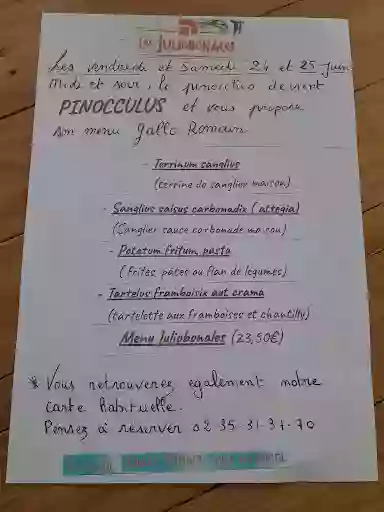 Les JULIOBONALES
Les vendredi et samedi 24 et 25 Juin
Midi et soir, le pinocchio devient
PINOCCULUS et vous propose
son menu Gallo Romain
- Terrinum sanglius
(terrine de sanglier maison)
- Sanglius salsus carbonadix (attegia)
(Sanglier sauce carbonade maison)
- Potatum fritum, pasta
(Frites, pâtes ou flan de légumes)
- Tartelus framboisix aut crama
(tartelette aux framboises et chantilly)
Menu Juliobonales (23,50€)
* Vous retrouverez également notre
carte habituelle.
Pensez à réserver 02 35 31 37 70